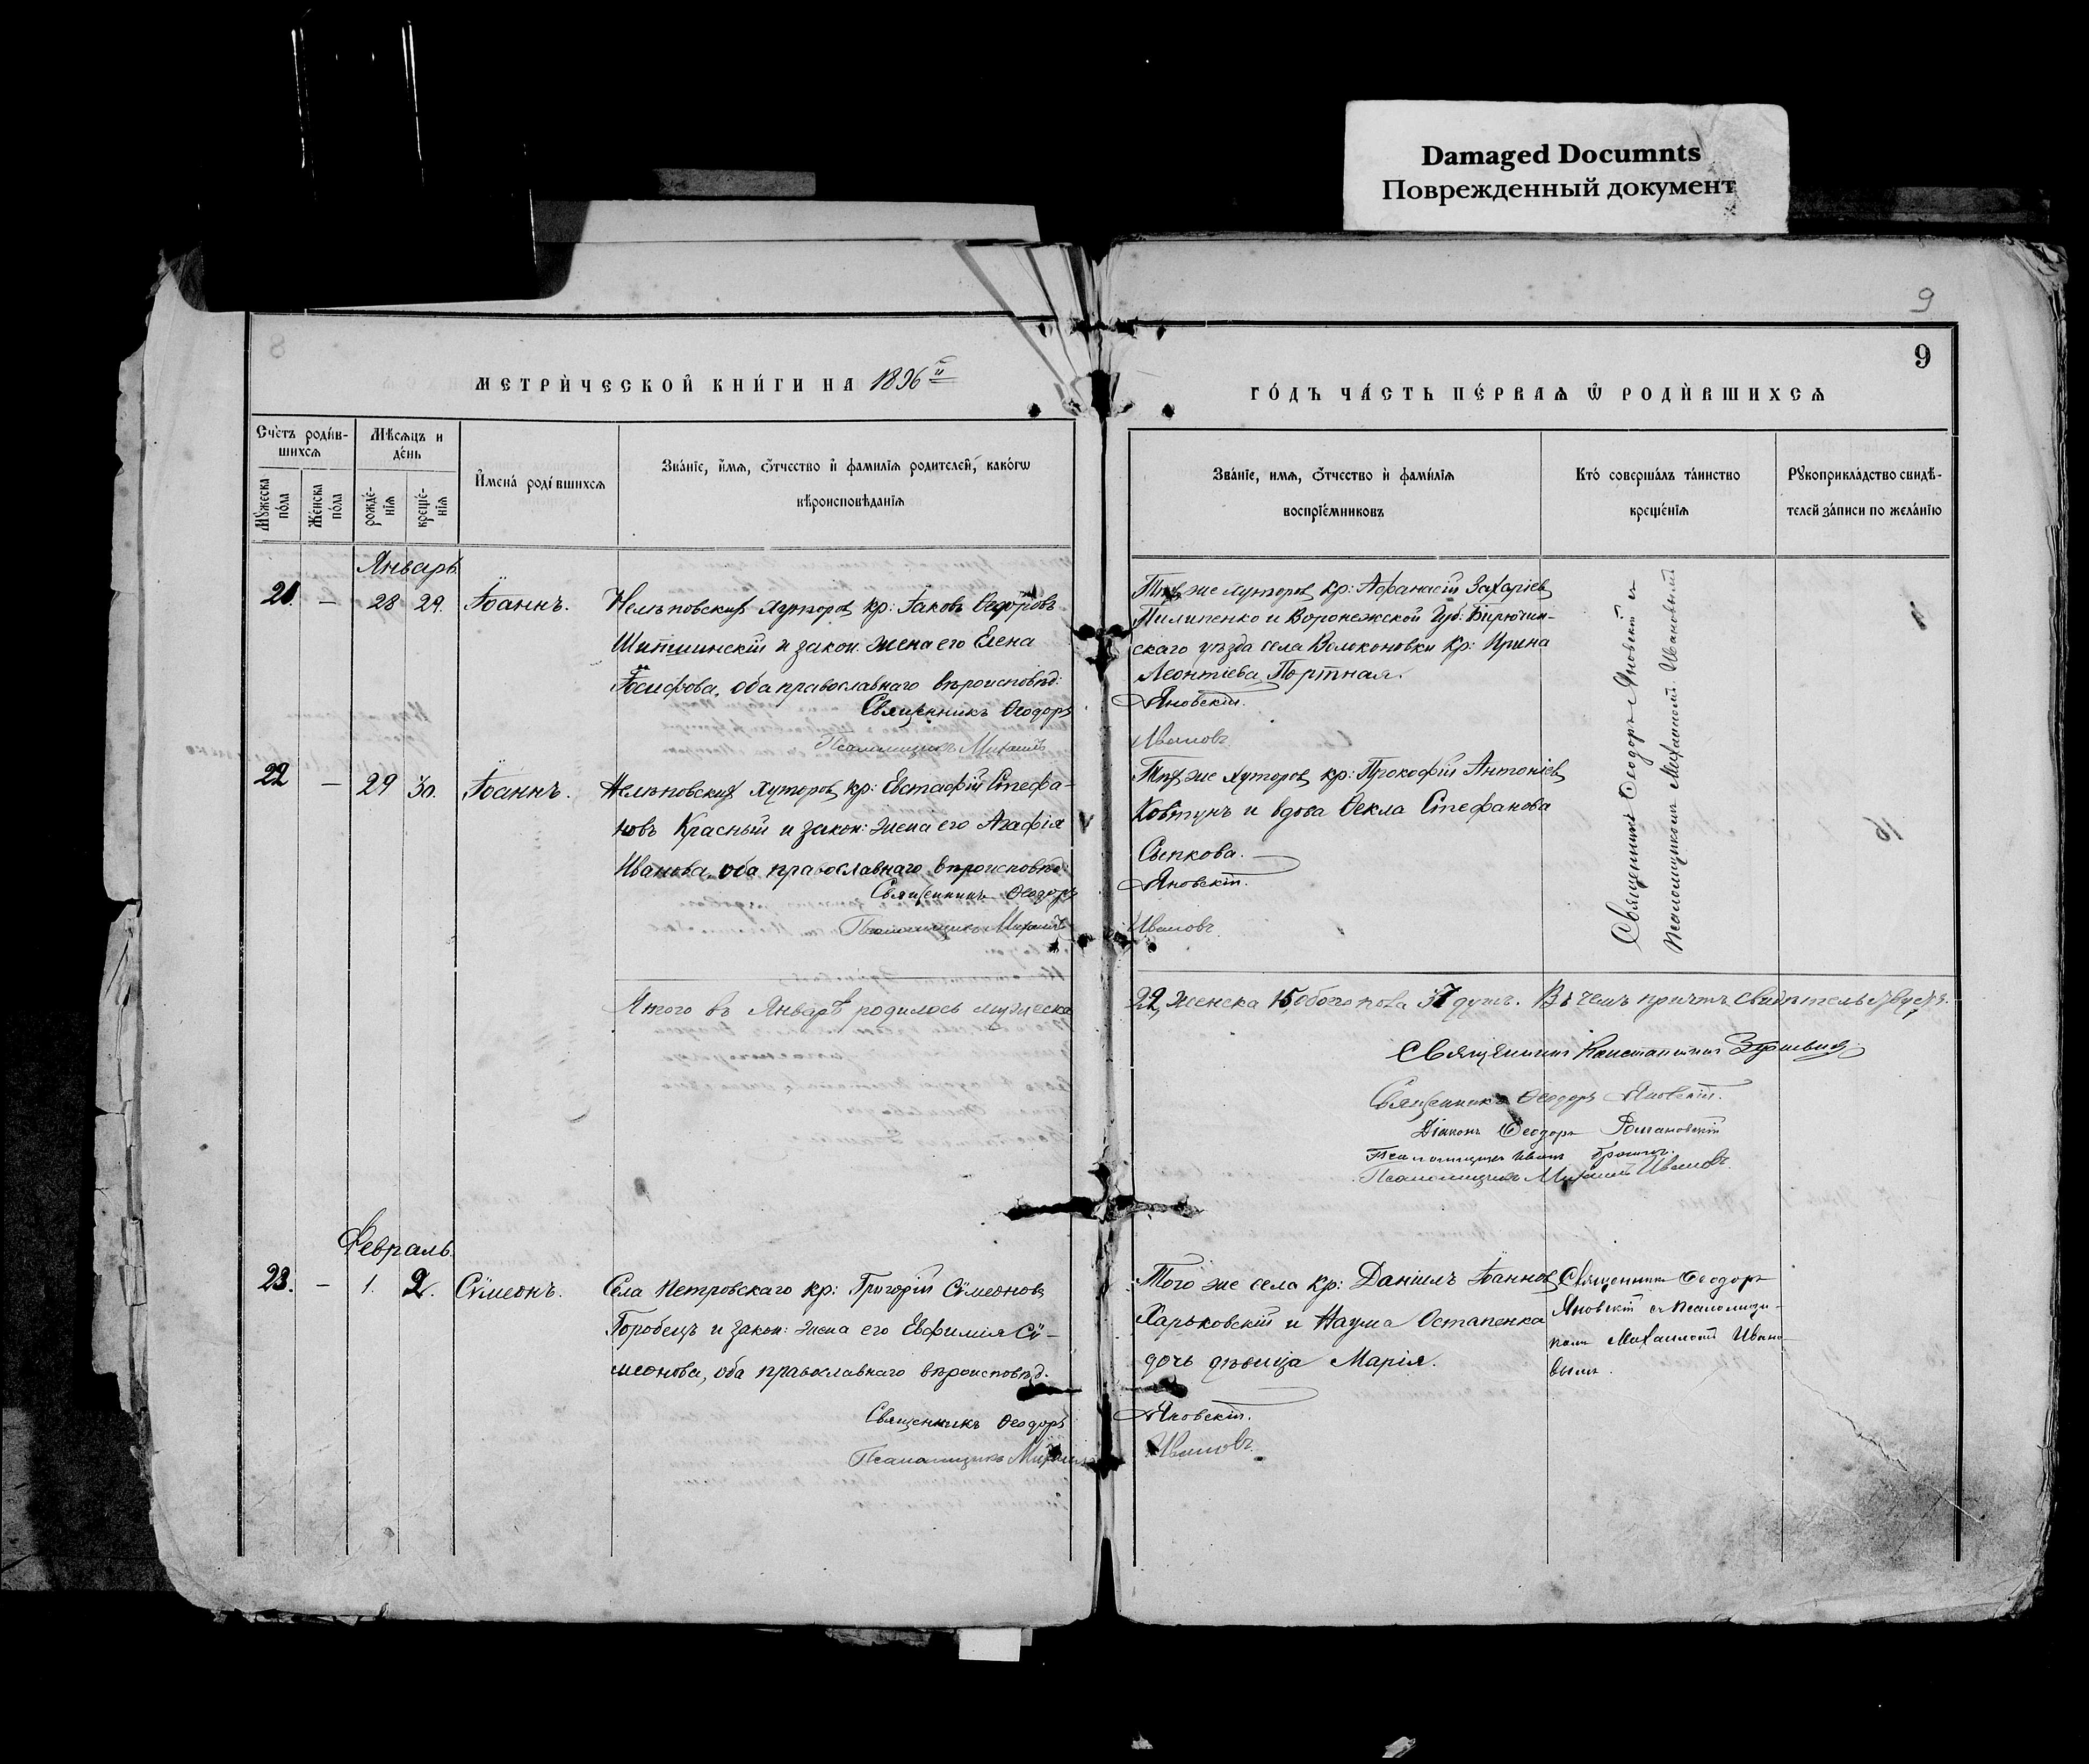 Damaged Documnts
Поврежденный документ
9
8
9
МЕТРИ́ЧЕСКОЙ КНИ́ГИ НА 1896й
ГО́ДЪ ЧА́СТЬ ПЕ́РВАѦ Ѡ РОДИ́ВШИХСѦ
Сче́тъ роди́в-
шихсѧ
Мѣ́сѧцъ и
де́нь
Мꙋ́жеска
по́ла
Же́нска
по́ла
рожде́-
нїѧ
креще́-
нїѧ
Имена́ роди́вшихсѧ
Зва́нїе, и́мѧ, ѻ́тчество и фами́лїѧ родителей, како́гѡ
вѣроисповѣ́данїѧ
Зва́нїе, имѧ, ѻ́тчество и фами́лїѧ
воспрїе́мниковъ
Кто́ соверша́лъ та́инство
креще́нїѧ
Рꙋкоприкла́дство свидѣ́-
телей за́писи по жела́нїю
Январь.
21. — 28 29. Іоаннъ.
Нелѣповскихъ хуторовъ кр: Іаковъ Ѳедоровъ
Шитшинскій и закон: жена его Елена
Іосифова, оба православнаго вѣроисповѣд:
Священникъ Ѳеодоръ
Псаломщикъ Михаилъ
Тѣхъ же хуторовъ кр: Аѳанасій Захаріевъ
Пилипенко и Воронежской Губ: Бирючин-
скаго уѣзда села Волоконовки кр: Ирина
Леонтіева Портная.
Яновскій.
Ивановъ
Священникъ Ѳеодоръ Яновскій съ
псаломщикомъ Михаиломъ Ивановымъ
22 — 29 30. Іоаннъ.
Нелѣповскихъ хуторовъ кр: Евстафій Стефа-
новъ Красный и закон: жена его Агафія
Иванова, оба православнаго вѣроисповѣд:
Священникъ Ѳеодоръ
Псаломщикъ Михаилъ
Тѣхъ же хуторовъ кр: Прокофій Антоніевъ
Ковтунъ и вдова Ѳекла Стефанова
Яновскій.
Ивановъ
Итого въ Январѣ родилось мужеска
22, женска 15, обоего пола 37 душъ. Въ чемъ причтъ свидѣтельствуетъ.
Священникъ Константинъ
Священникъ Ѳеодоръ Яновскій.
Діаконъ Ѳеодоръ Романовскій
Псаломщикъ Иванъ
Псаломщикъ Михаилъ Ивановъ.
Февраль.
23. — 1. 2. Сѵмеонъ.
Села Петровскаго кр: Григорій Сѵмеоновъ
Горобецъ и закон: жена его Евфимія Сѵ-
меонова, оба православнаго вѣроисповѣд.
Священникъ Ѳеодоръ
Псаломщикъ Михаилъ
Того же села кр: Даніилъ Іоанновъ
Харьковскій и Наума Остапенка
дочь дѣвица Марія.
Яновскій.
Ивановъ.
Священникъ Ѳеодоръ
Яновскій съ псаломщи-
комъ Михаиломъ Ивано-
вымъ.